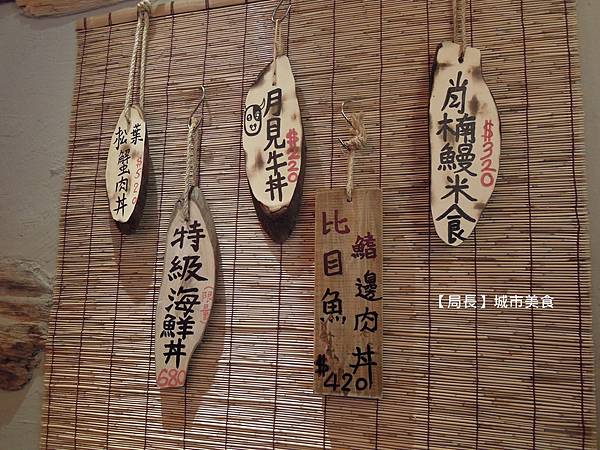 松葉蟹肉丼
$520
特級海鮮丼
(限量)
680
月見牛丼
$220
比目魚
鰭邊肉丼
$420
肖楠鰻米食
$320
【局長】城市美食